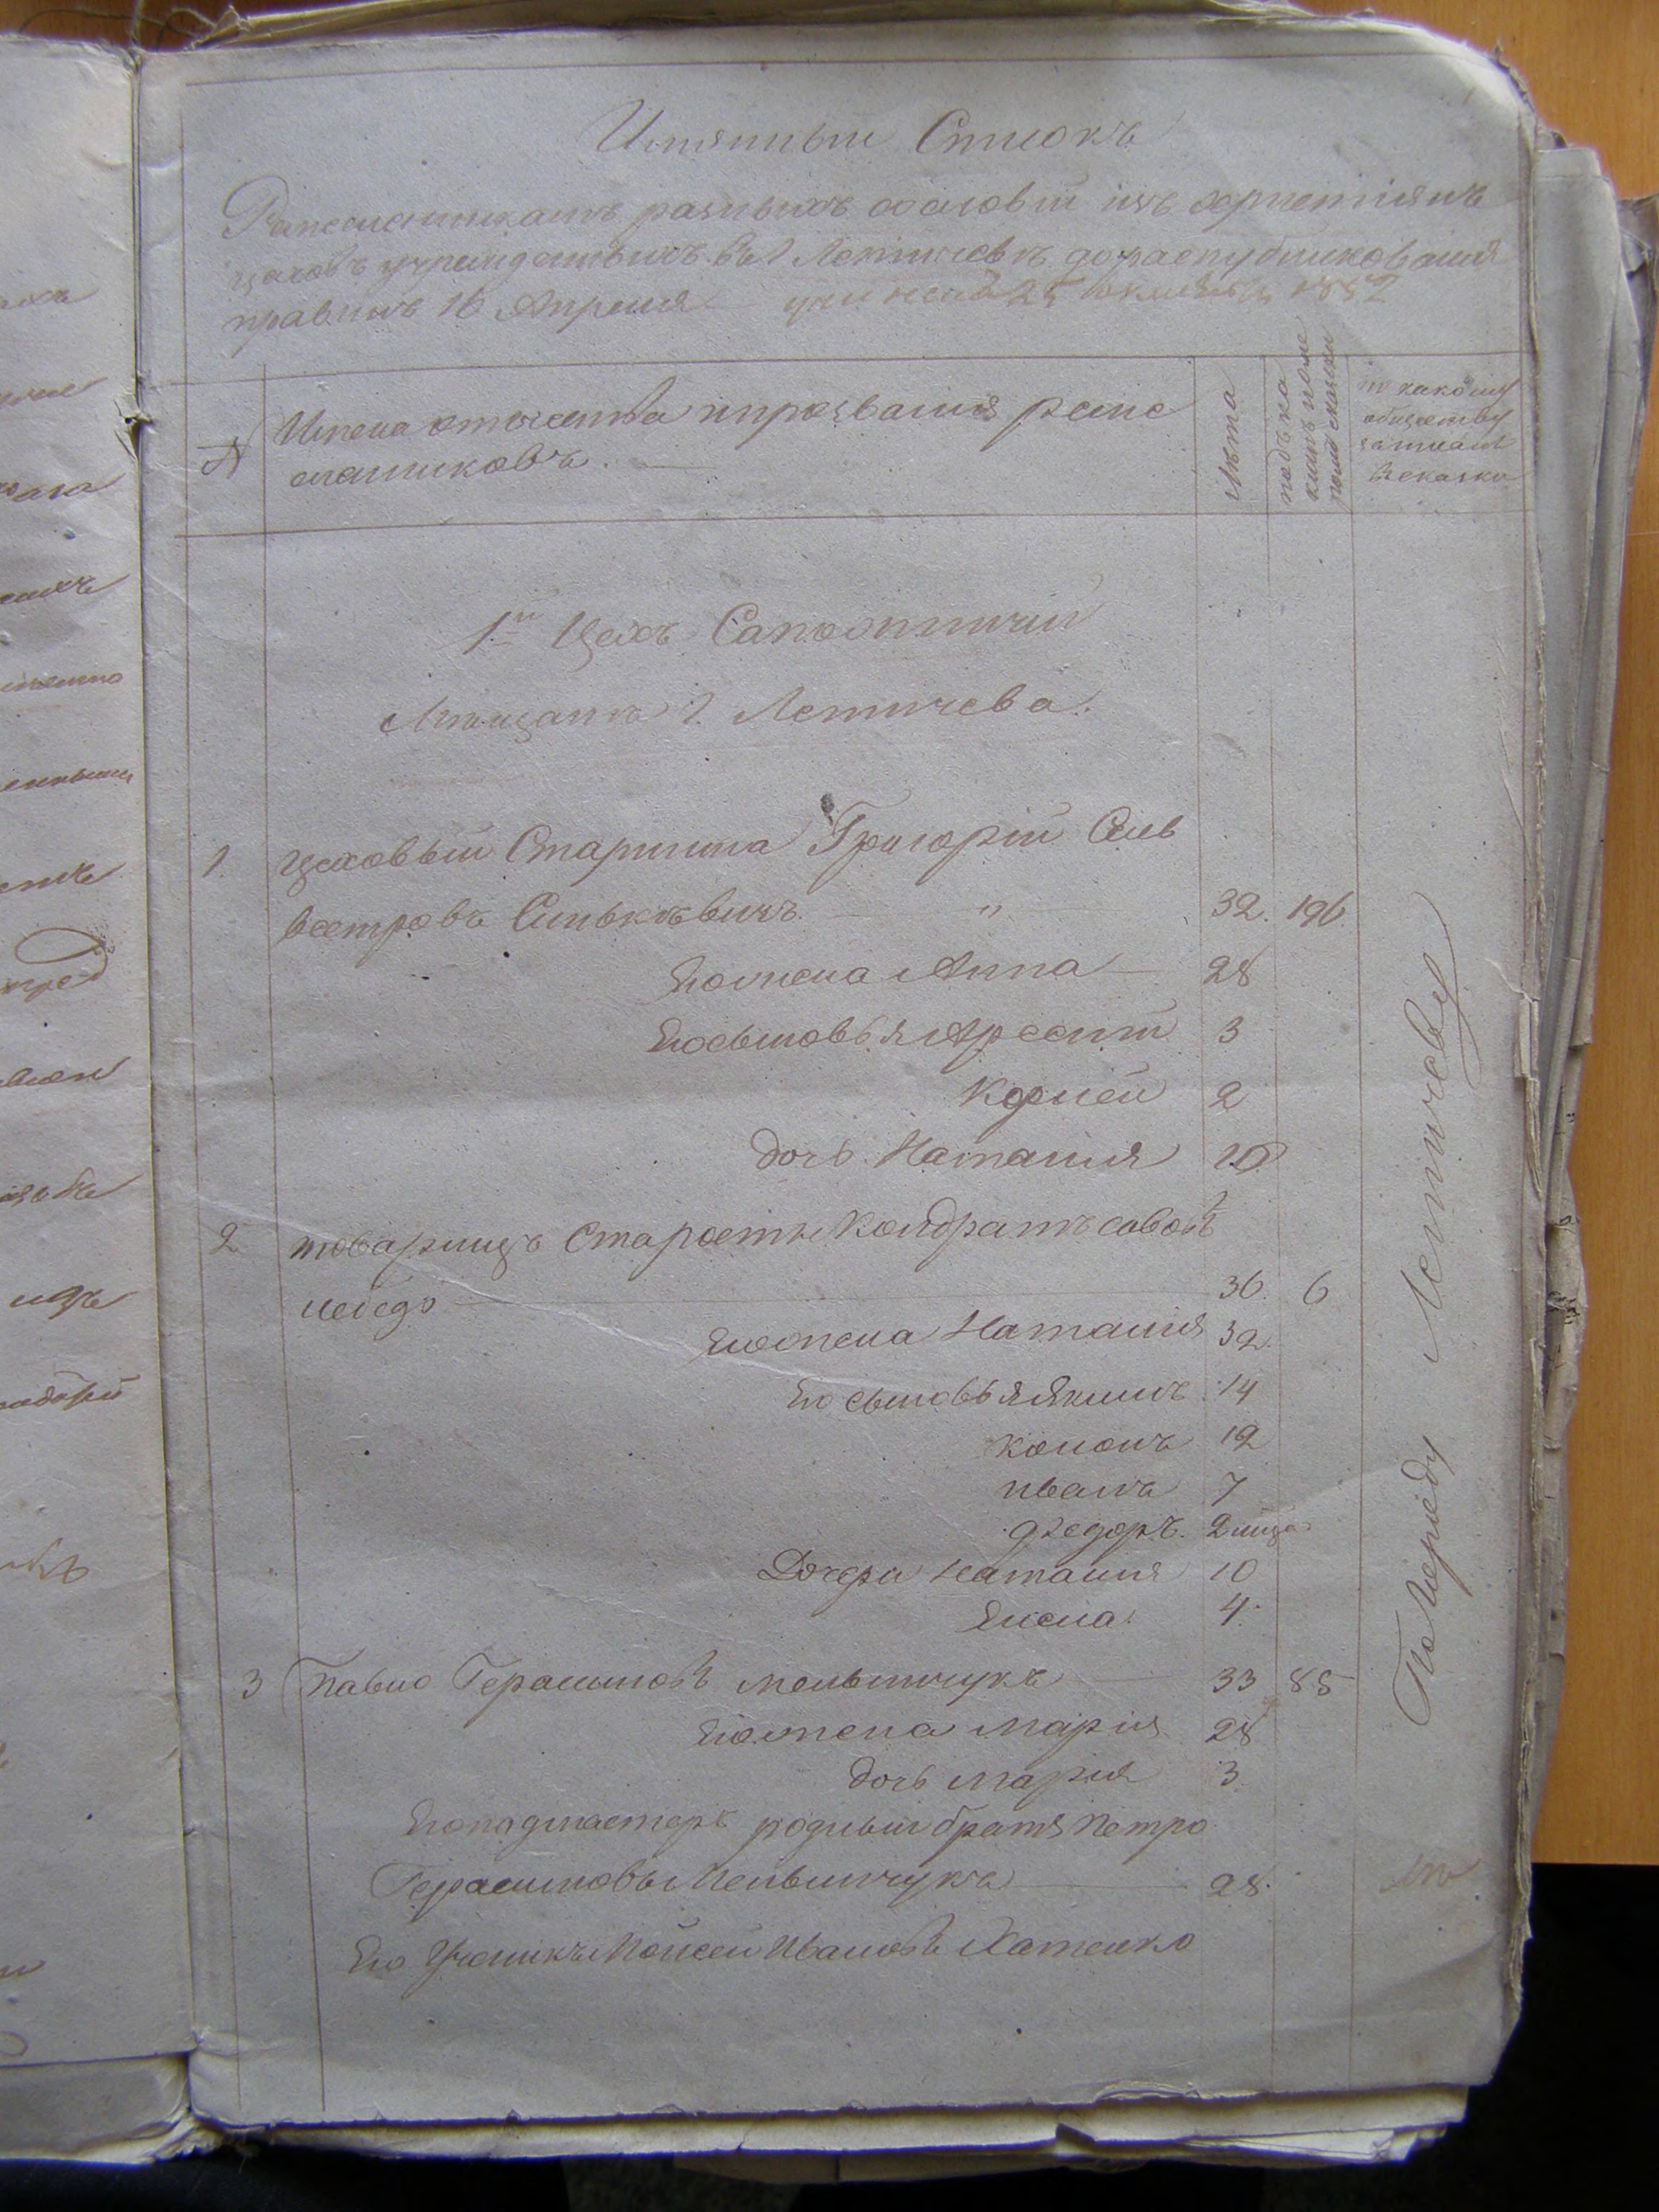 Имянный Списокъ
Ремесленникамъ разныхъ сословій изъ христіянъ
цеховъ учрежденныхъ въ г. Летичевѣ до распубликованія
правилъ 16 Апреля учиненъ 25 1852
№
Имена отчества и прозванія реме
сленниковъ.
Лѣта
къ какому
обществу
записанъ
въ сказки
1й Цехъ Сапожничій
Мѣщане г. Летичева.
1. Цеховый Старшина Григорій Силь
вестровъ Синькѣвичъ. — " — 32. 196
Его жена Анна — 28
Его сыновья Арсеній 3
Корней 2
дочь Наталия 10
2 товарищъ Старосты Кондратъ Савовъ
лебедь — 36. 6
Его жена Наталия 32
Его сыновья Якимъ 14
кононъ 12
иванъ 7
Федоръ. 2
Дочери наталия 10
Елена 4.
3 Павло Герасимовъ мельничукъ — 33 85
Его жена Мария 28
дочь Мария 3
Его подмастеръ родный братъ Петро
Герасимовъ Мельничукъ — 28.
Его Ученикъ Мойсей Ивановъ Хатенко
По Городу Летичеву